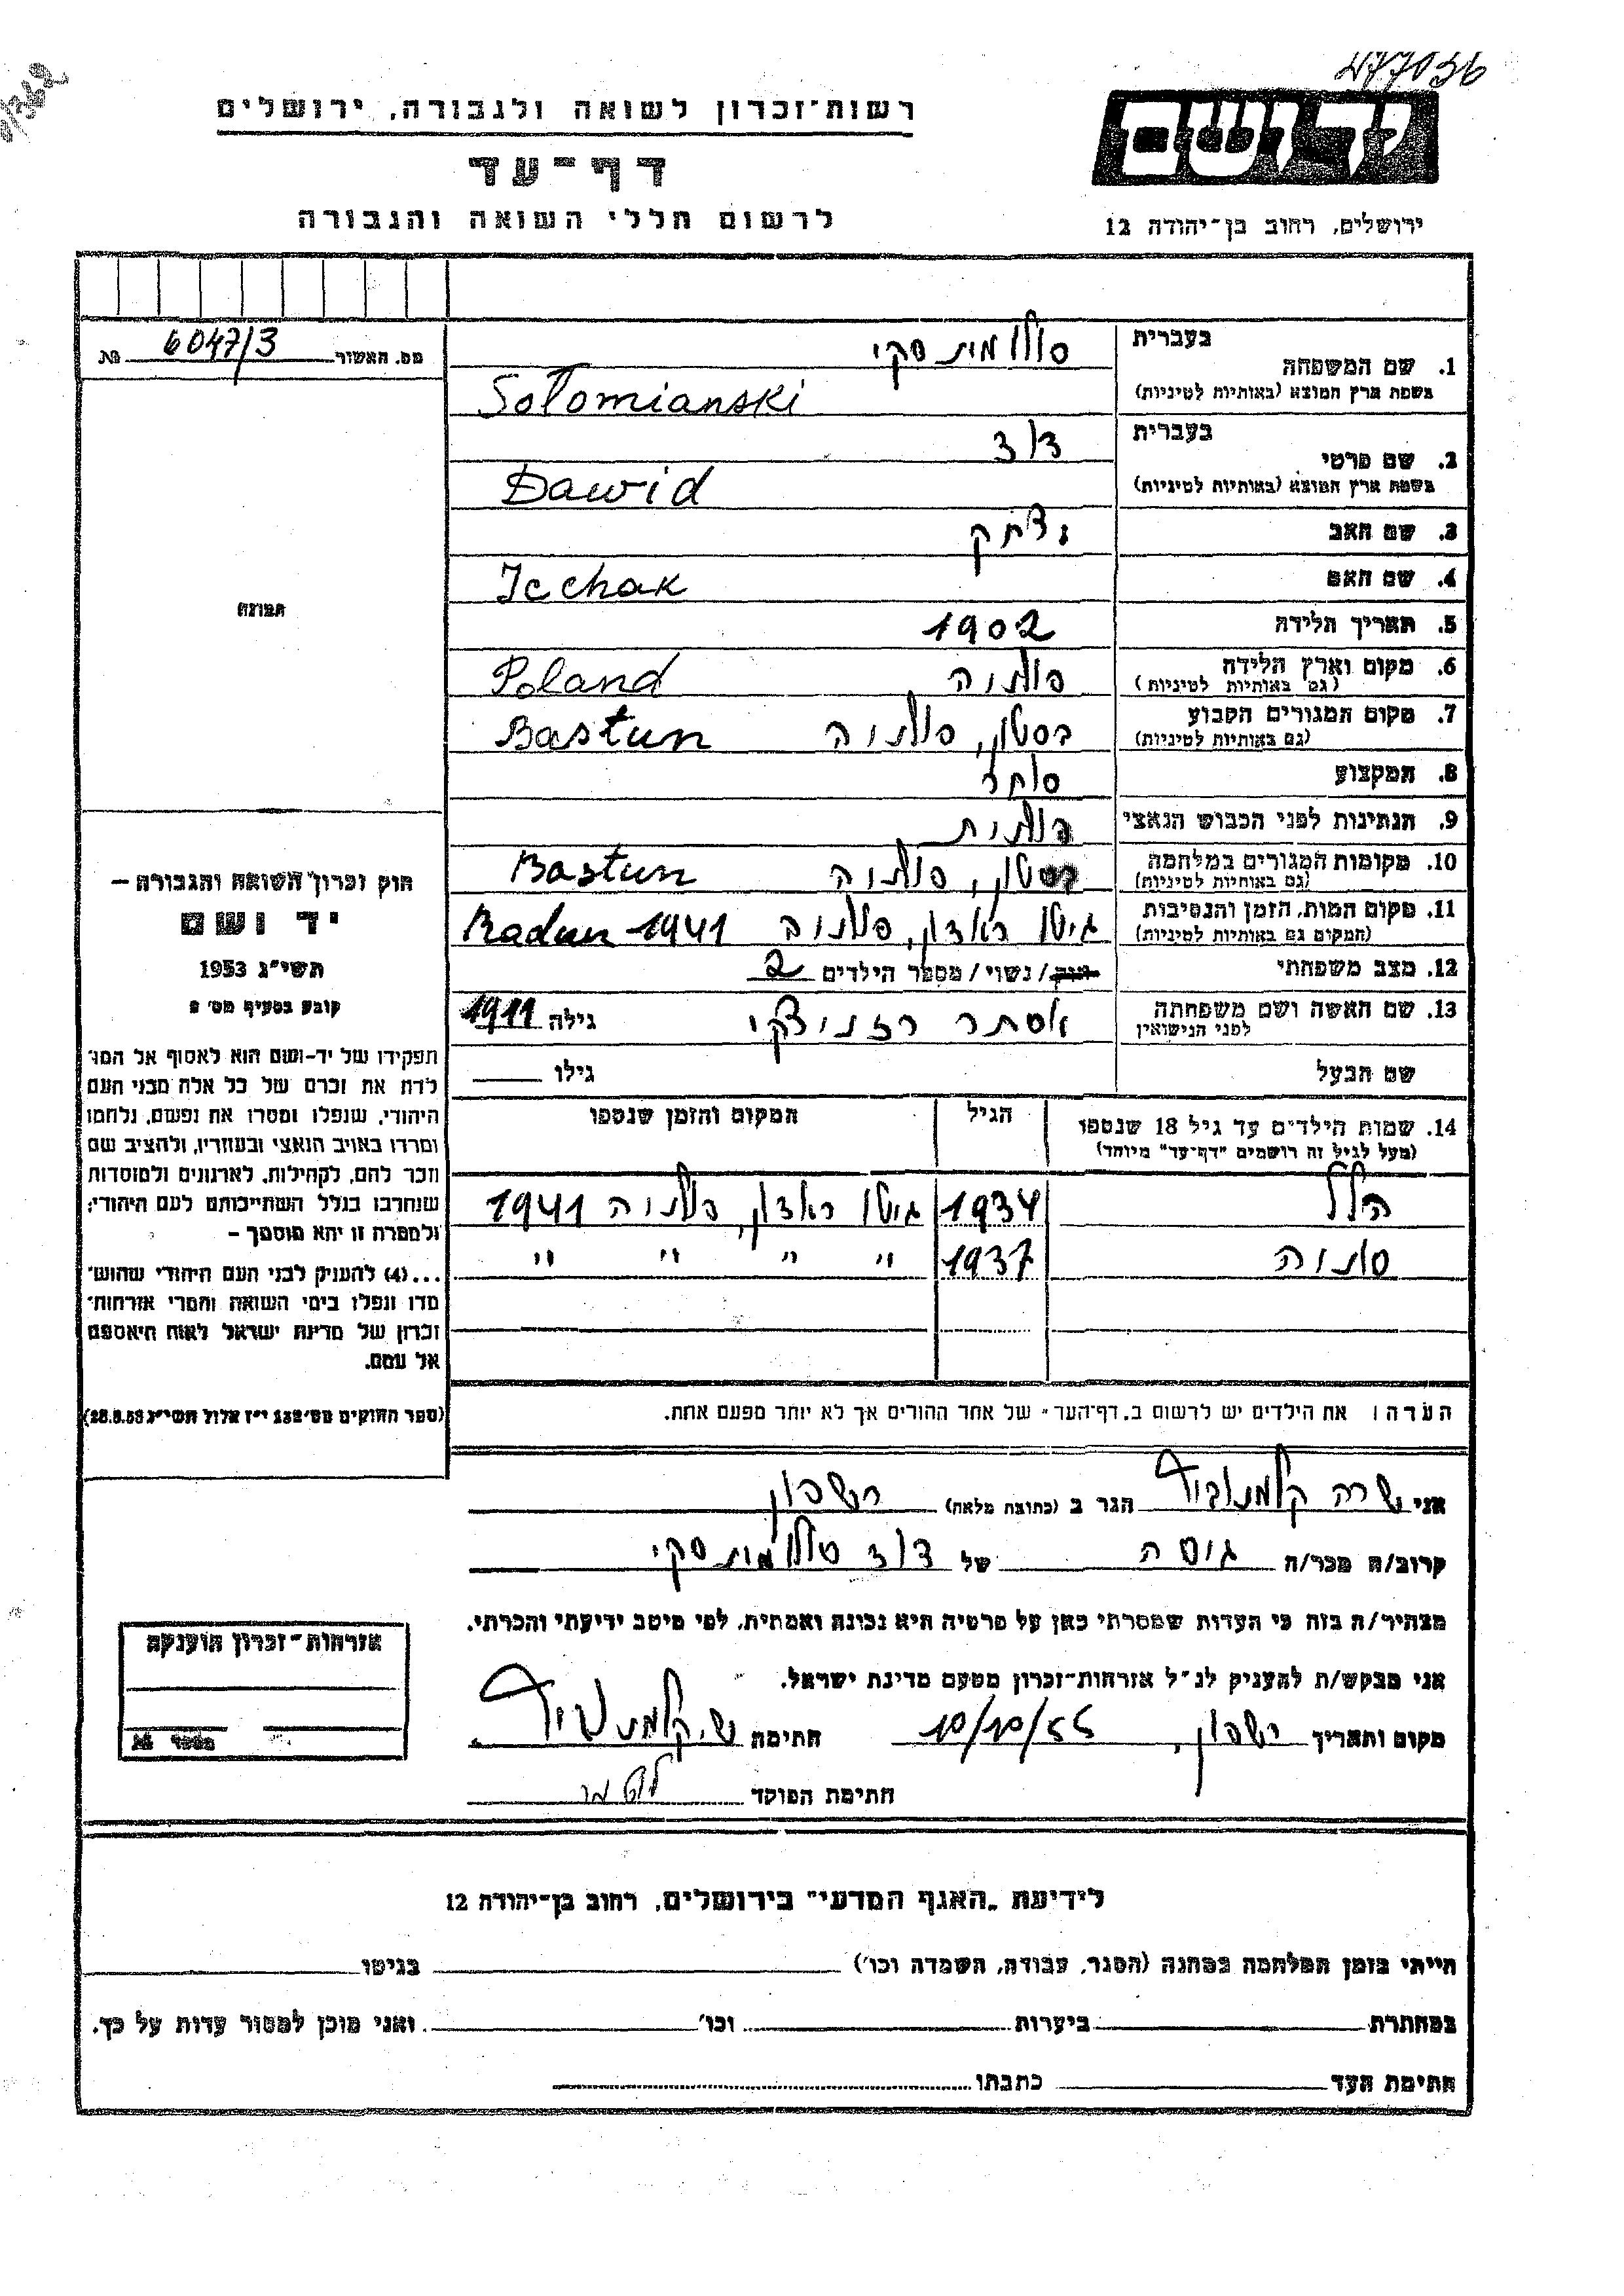 477036
רשות־זכרון לשואה ולגבורה, ירושלים
יד ושם
דף־עד
לרשום חללי השואה והגבורה
ירושלים, רחוב בן־יהודה 12
מס. האשור 6047/3 №
תמונה
חוק זכרון השואה והגבורה –
יד ושם
תשי״ג 1953
קובע בסעיף מס׳ 2
תפקידו של יד-ושם הוא לאסוף אל המו־
לדת את זכרם של כל אלה מבני העם
היהודי, שנפלו ומסרו את נפשם, נלחמו
ומרדו באויב הנאצי ובעוזריו, ולהציב שם
וזכר להם, לקהילות, לארגונים ולמוסדות
שנחרבו בגלל השתייכותם לעם היהודי;
ולמטרה זו יהא מוסמך –
...(4) להעניק לבני העם היהודי שהוש־
מדו ונפלו בימי השואה והמרי אזרחות־
זכרון של מדינת ישראל לאות היאספם
אל עמם.
(ספר החוקים מס׳ 132 י״ז אלול תשי״ג 28.8.53)
1. שם המשפחה בעברית סולומינסקי
בשפת ארץ המוצא (באותיות לטיניות) Sołomianski
2. שם פרטי בעברית דוד
בשפת ארץ המוצא (באותיות לטיניות) Dawid
3. שם האב יצחק
4. שם האם Icchak
5. תאריך הלידה 1902
6. מקום וארץ הלידה (גם באותיות לטיניות) פולניה Poland
7. מקום המגורים הקבוע (גם באותיות לטיניות) בסטון, פולניה Bastun
8. המקצוע סוחר
9. הנתינות לפני הכבוש הנאצי פולנית
10. מקומות המגורים במלחמה (גם באותיות לטיניות) בסטון, פולניה Bastun
11. מקום המות, הזמן והנסיבות (המקום גם באותיות לטיניות) גיטו ראדון, פולניה 1941 Radun
12. מצב משפחתי רווק / נשוי / מספר הילדים 2
13. שם האשה ושם משפחתה לפני הנישואין אסתר רזניצקי גילה 1911
שם הבעל גילו
14. שמות הילדים עד גיל 18 שנספו הגיל המקום והזמן שנספו
(מעל לגיל זה רושמים "דף־עד" מיוחד)
הלל 1934 גיטו ראדון, פולניה 1941
סוניה 1937 " " " "
הערה: את הילדים יש לרשום ב„דף־העד״ של אחד ההורים אך לא יותר מפעם אחת.
אני שרה קלמנוביץ הגר ב (כתובת מלאה) רשפון
קרוב/ה מכר/ה גיסה של דוד סולומינסקי
מצהיר/ה בזה כי העדות שמסרתי כאן על פרטיה היא נכונה ואמתית, לפי מיטב ידיעתי והכרתי.
אני מבקש/ת להעניק לנ״ל אזרחות־זכרון מטעם מדינת ישראל.
מקום ותאריך רשפון, חתימה ש. קלמנוביץ
חתימת הפוקד
אזרחות־זכרון הוענקה
מספר №
לידיעת „האגף המדעי״ בירושלים, רחוב בן־יהודה 12
הייתי בזמן המלחמה במחנה (הסגר, עבודה, השמדה וכו׳) בגיטו
במחתרת ביערות וכו׳ ואני מוכן למסור עדות על כך.
חתימת העד כתבתו